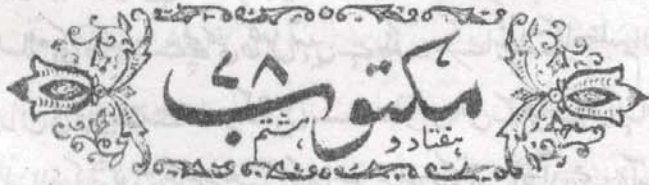 مکتوب ۷۸
ہفتاد و ہشتم